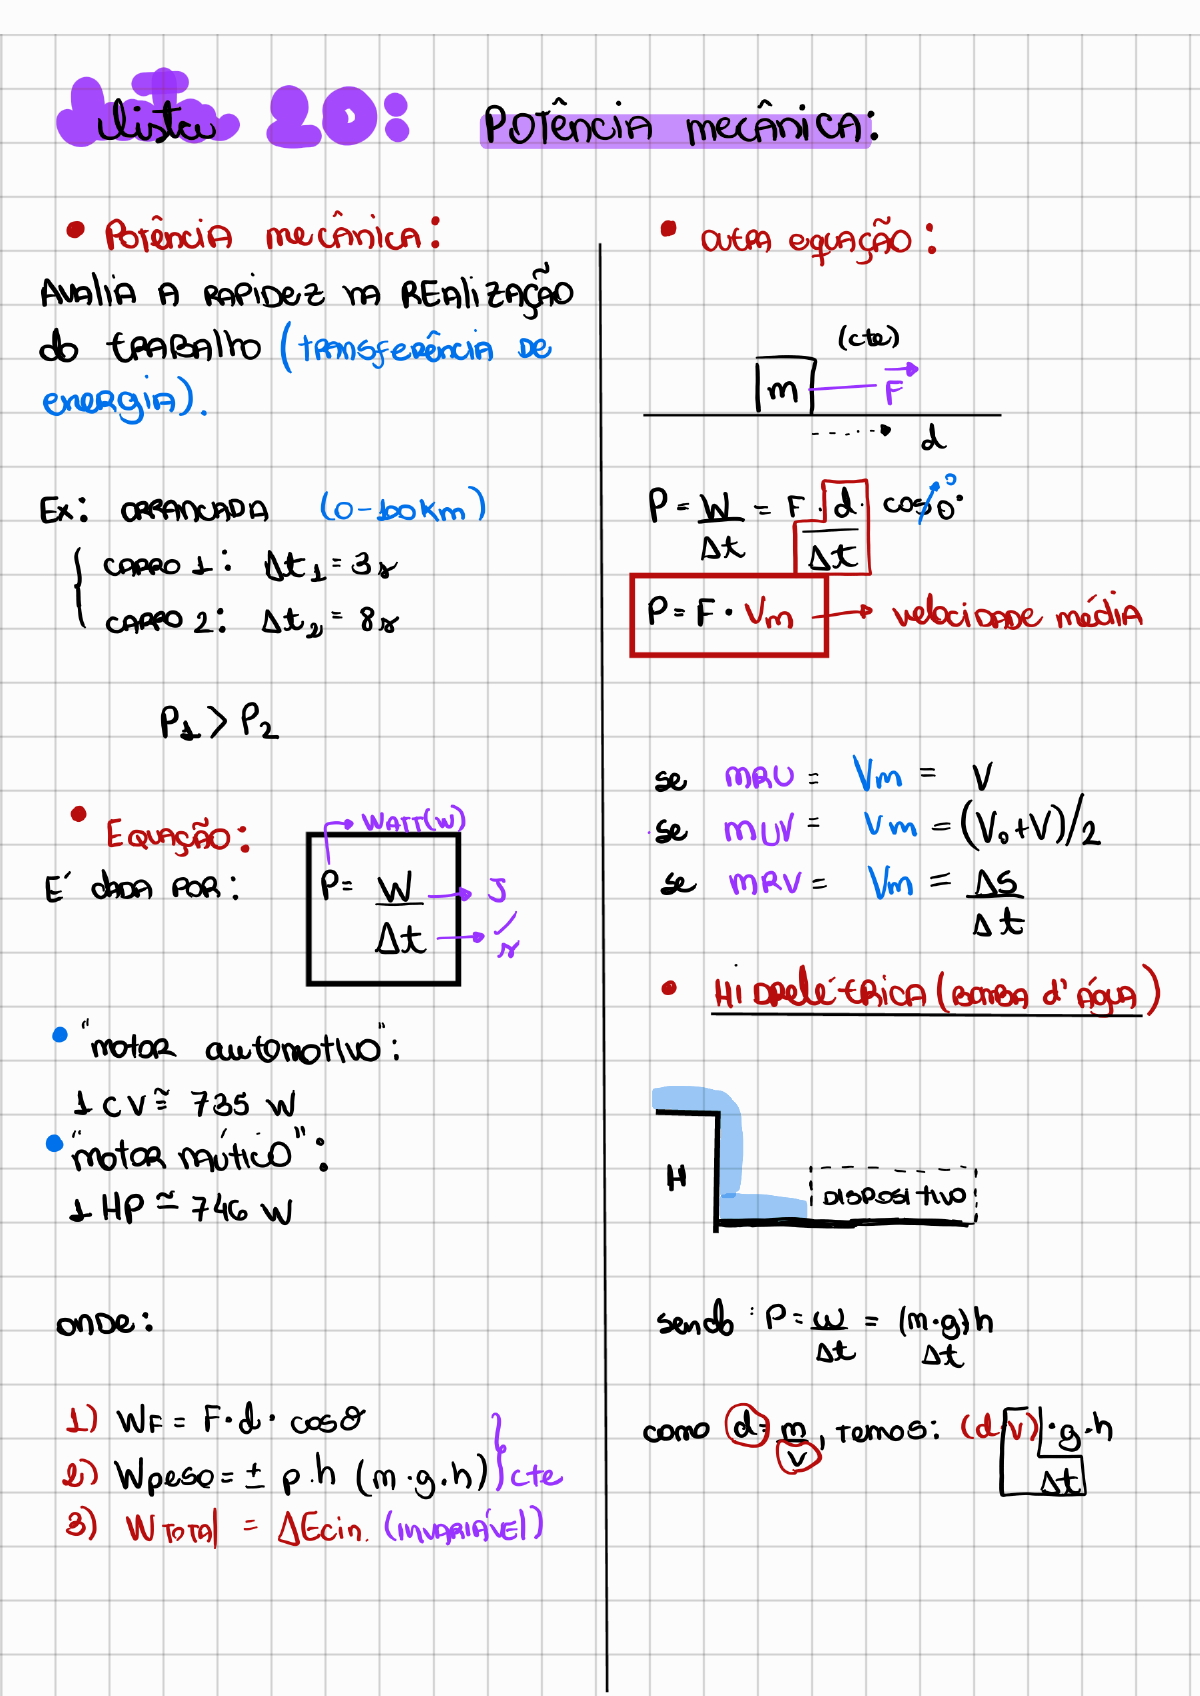 lista 20: Potência mecânica:
• Potência mecânica:
Avalia a rapidez na realização
do trabalho (transferência de
energia).
Ex: arrancada (0-100km)
carro 1: Δt₁ = 3s
carro 2: Δt₂ = 8s
P₁ > P₂
• Equação:
É dada por:
Watt(W)
P = W/Δt
J
s
• "motor automotivo":
1 cv ≅ 735 W
• "motor náutico":
1 HP ≅ 746 W
onde:
1) WF = F·d·cosθ
2) Wpeso = ± p·h (m·g·h) } cte
3) WTotal = ΔEcin. (invariável)
• outra equação:
(cte)
m F
d
P = W/Δt = F·d·cos0°/Δt
P = F·Vm → velocidade média
se MRU = Vm = V
se MUV = Vm = (V₀+V)/2
se MRV = Vm = ΔS/Δt
• Hidrelétrica (bomba d'água)
H
dispositivo
sendo: P = W/Δt = (m·g)h/Δt
como d = m/v, temos: (d v)·g·h/Δt